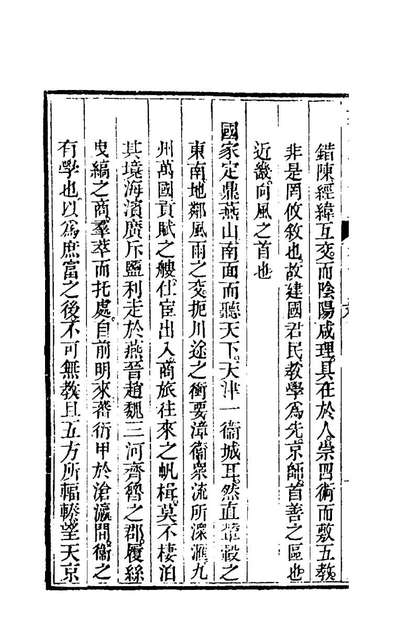 錯陳經緯互交而陰陽咸理具在於人崇四術而敷五教
非是罔攸敘也故建國君民教學為先京師首善之區也
近畿向風之首也
國家定鼎燕山南面而聽天下天津一衞城耳然直輦轂之
東南地鄰風雨之交扼川途之衝要漳衞衆流所深滙九
州萬國貢賦之艘仕宦出入商旅往來之帆楫莫不棲泊
其境海濱廣斥鹽利走於燕晉趙魏三河齊魯之郡履絲
曳縞之商羣萃而托處自前明來蕃衍甲於滄瀛間衞之
有學也以為庶富之後不可無教且五方所輻輳望天京